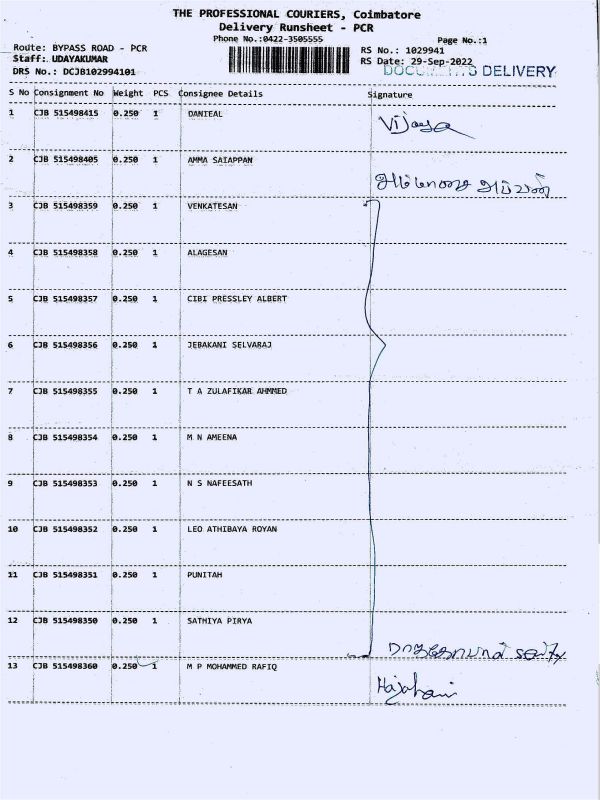 THE PROFESSIONAL COURIERS, Coimbatore
Delivery Runsheet - PCR
Phone No.:0422-3505555
Page No.:1
Route: BYPASS ROAD - PCR
RS No.: 1029941
Staff: UDAYAKUMAR
RS Date: 29-Sep-2022
DRS No.: DCJB102994101
DOCUMENTS DELIVERY
S No Consignment No Weight PCS Consignee Details Signature
1 CJB 515498415 0.250 1 DANIEAL Vijaya
2 CJB 515498405 0.250 1 AMMA SAIAPPAN
3 CJB 515498359 0.250 1 VENKATESAN
4 CJB 515498358 0.250 1 ALAGESAN
5 CJB 515498357 0.250 1 CIBI PRESSLEY ALBERT
6 CJB 515498356 0.250 1 JEBAKANI SELVARAJ
7 CJB 515498355 0.250 1 T A ZULAFIKAR AHMMED
8 CJB 515498354 0.250 1 M N AMEENA
9 CJB 515498353 0.250 1 N S NAFEESATH
10 CJB 515498352 0.250 1 LEO ATHIBAYA ROYAN
11 CJB 515498351 0.250 1 PUNITAH
12 CJB 515498350 0.250 1 SATHIYA PIRYA
13 CJB 515498360 0.250 1 M P MOHAMMED RAFIQ